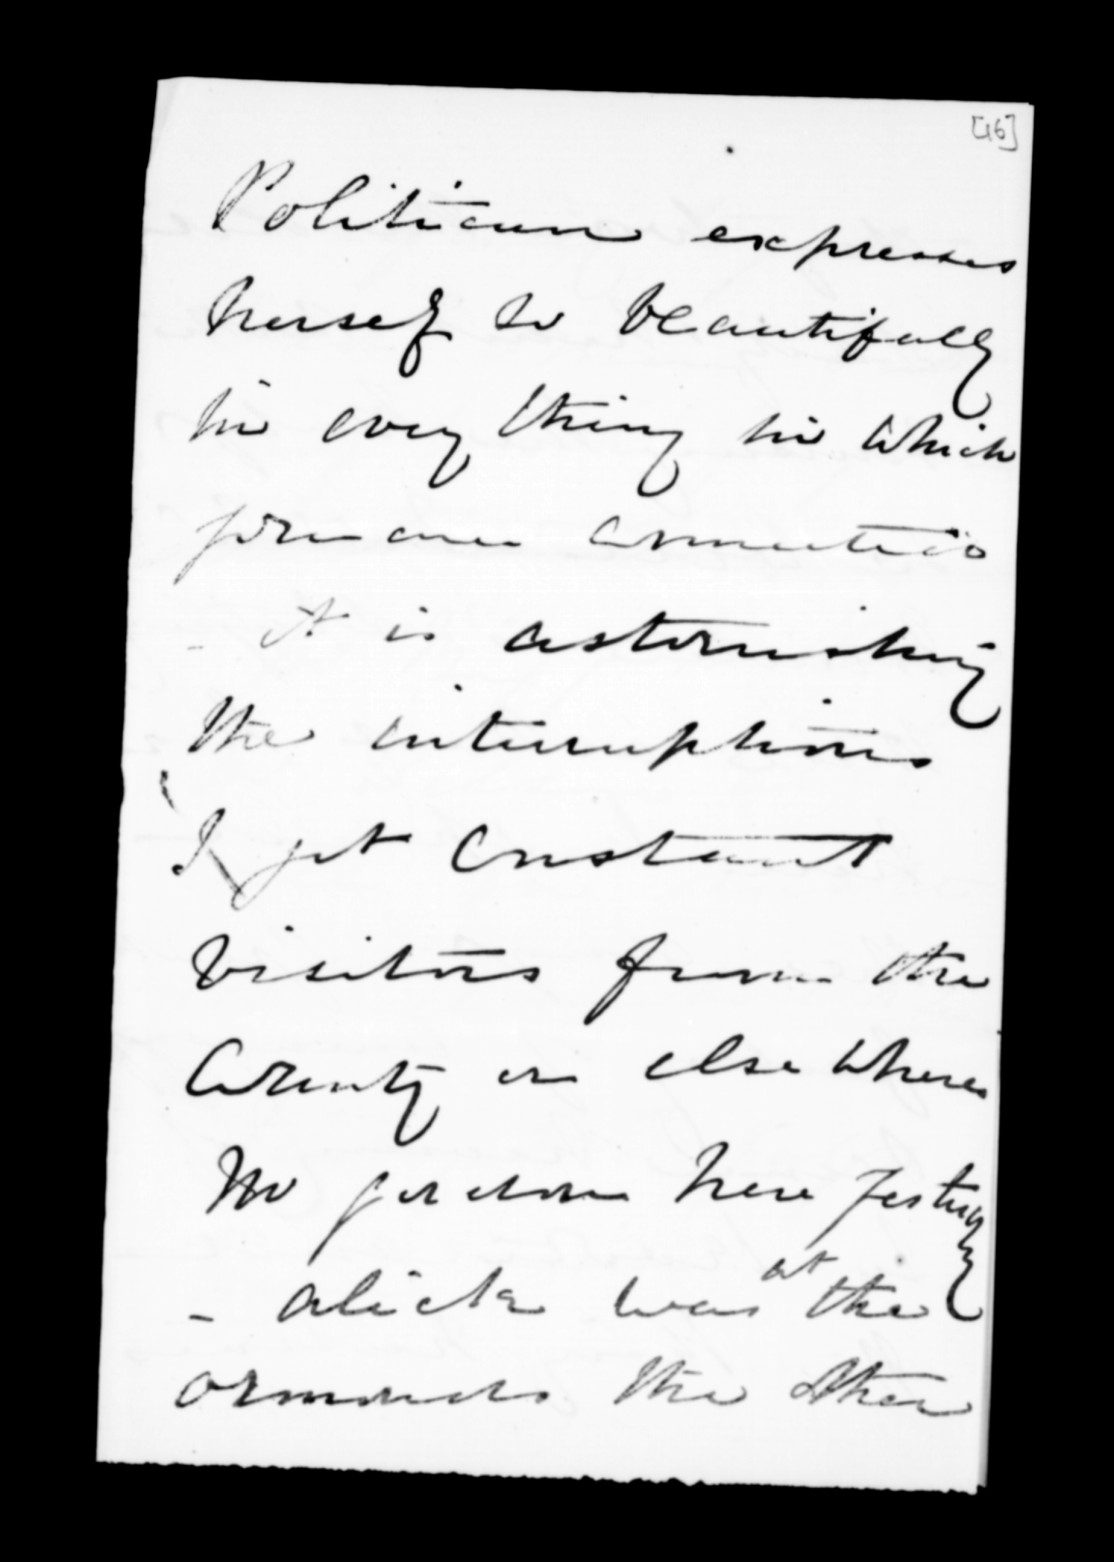 [16]
Politician expresses
herself so beautifully
in every thing in which
you are connected
- It is astonishing
the interruptions
I get constant
visitors from the
County or else where
Mr Gordon here yesterday
- Alick was at the
Ormonds the other